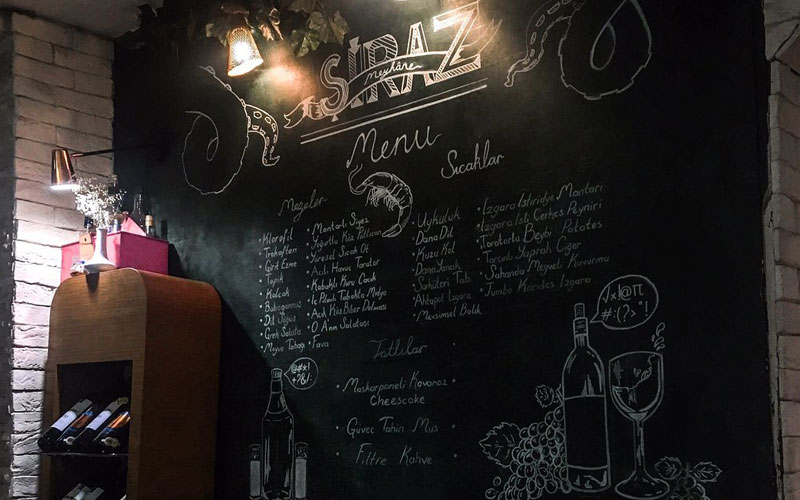 ŞİRAZ
meyhane
Menu
Mezeler
Sıcaklar
• Klorofil
• Trakofteri
• Girit Ezme
• Topik
• Kolçak
• Babagannuş
• Dil Söğüş
• Grek Salata
• Meyve Tabağı
• Mantarlı Siyez
• Yoğurtlu Köz Patlıcan
• Yöresel Sıcak Ot
• Acılı Havuç Tarator
• Kabaklı Kuru Cacık
• İç Pilavlı Tabakta Midye
• Acılı Köz Biber Dolması
• O Ann Salatası
• Fava
• Uykuluk
• Dana Dil
• Kuzu Kol
• Dana Yanak
• Ahtapot Izgara
• Mevsimsel Balık
• Izgara İstiridye Mantarı
• Izgara İsli Çerkes Peyniri
• Taratorlu Beybi Patates
• Tarçınlı Yaprak Ciğer
• Sahanda Meyveli Kavurma
• Jumbo Karides Izgara
Tatlılar
• Maskarpaneli Kavanoz
Cheescake
• Güveç Tahin Mus
• Filtre Kahve
@#*!
+?&/:
√x|@∏
#:(?>°!